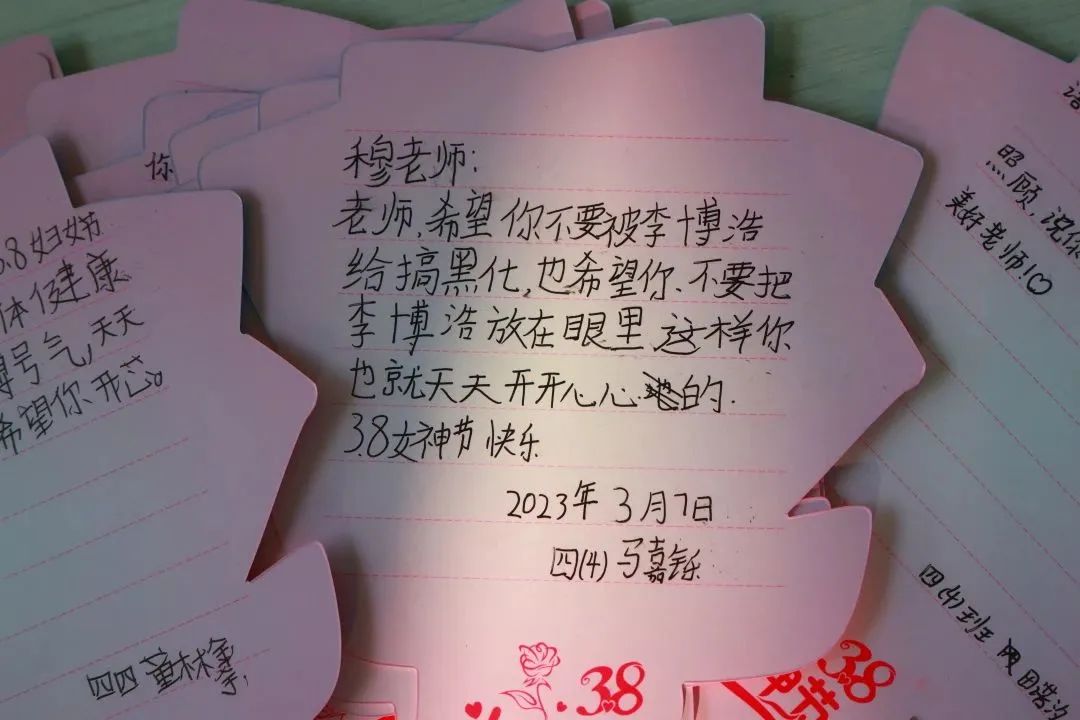 穆老师:
老师,希望你不要被李博浩
给搞黑化,也希望你、不要把
李博浩放在眼里这样你
也就天天开开心心的.
3.8女神节快乐
2023年3月7日
四(4)马嘉铄
你
3.8妇女节
体健康
气,天天
希望你开心。
四四董林
照顾,说你
美好老师!
四(4)班
38
38